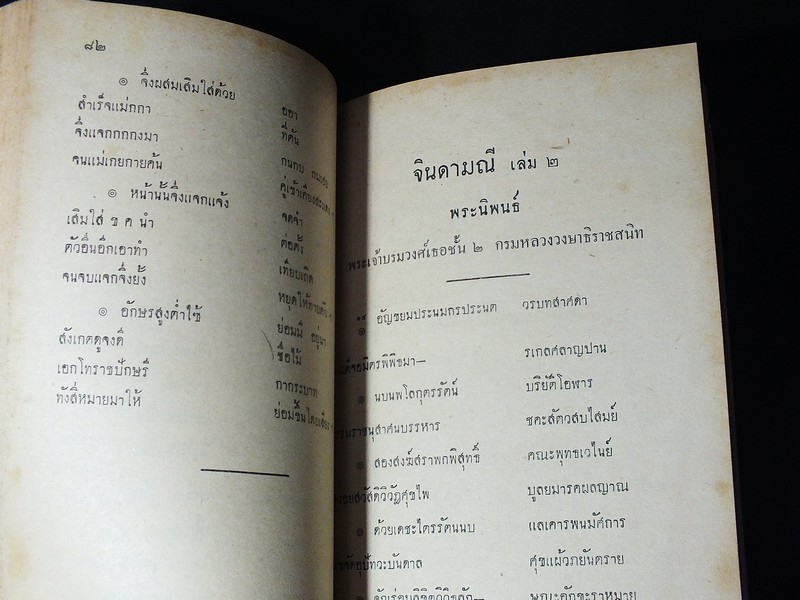 ๘๒
๏ จึ่งผสมเสิมใส่ด้วย ออา
สำเร็จแม่กกา ที่คัน
จึ่งแจกกกกงมา กนกบ
จนแม่เกยกายค้น คู่เข้าเคียงสะแดง
๏ หน้านั้นจึ่งแจกแจ้ง จดจำ
เสิมใส่ ข ค นำ ต่อตั้ง
ตัวอื่นอีกเอาทำ เทียบเถิด
จนจบแจกจึ่งยั้ง หยุดให้ทาย
๏ อักษรสูงต่ำใช้ ย่อมมี อยู่นา
สังเกตดูจงดี ชื่อไม้
เอกโทราชปักษรี กากระบาท
ทังสี่หมายมาให้ ย่อมขึ้นโดยเสียง
จินดามณี เล่ม ๒
พระนิพนธ์
พระเจ้าบรมวงศ์เธอชั้น ๒ กรมหลวงวงษาธิราชสนิท
๑๙
๏ อัญขยมประนมกรประนต วรบทสาศดา
พิพิธมา— รเกลศลาญปาน
๏ นบนพโลกุตรรัตน์ บริยัติโอฬาร
ราชนุสาศนบรรหาร ชคะสัตวสบไสมย์
๏ สองสงฆ์สราพกพิสุทธิ์ คณะพุทธเวไนย์
สวัสดิวิวัฏศุขไพ บูลยมารคผลญาณ
๏ ด้วยเดชะไตรรัตนนบ แลเคารพนมัศการ
อุปัทวะบันดาล ศุขแผ้วภยันตราย